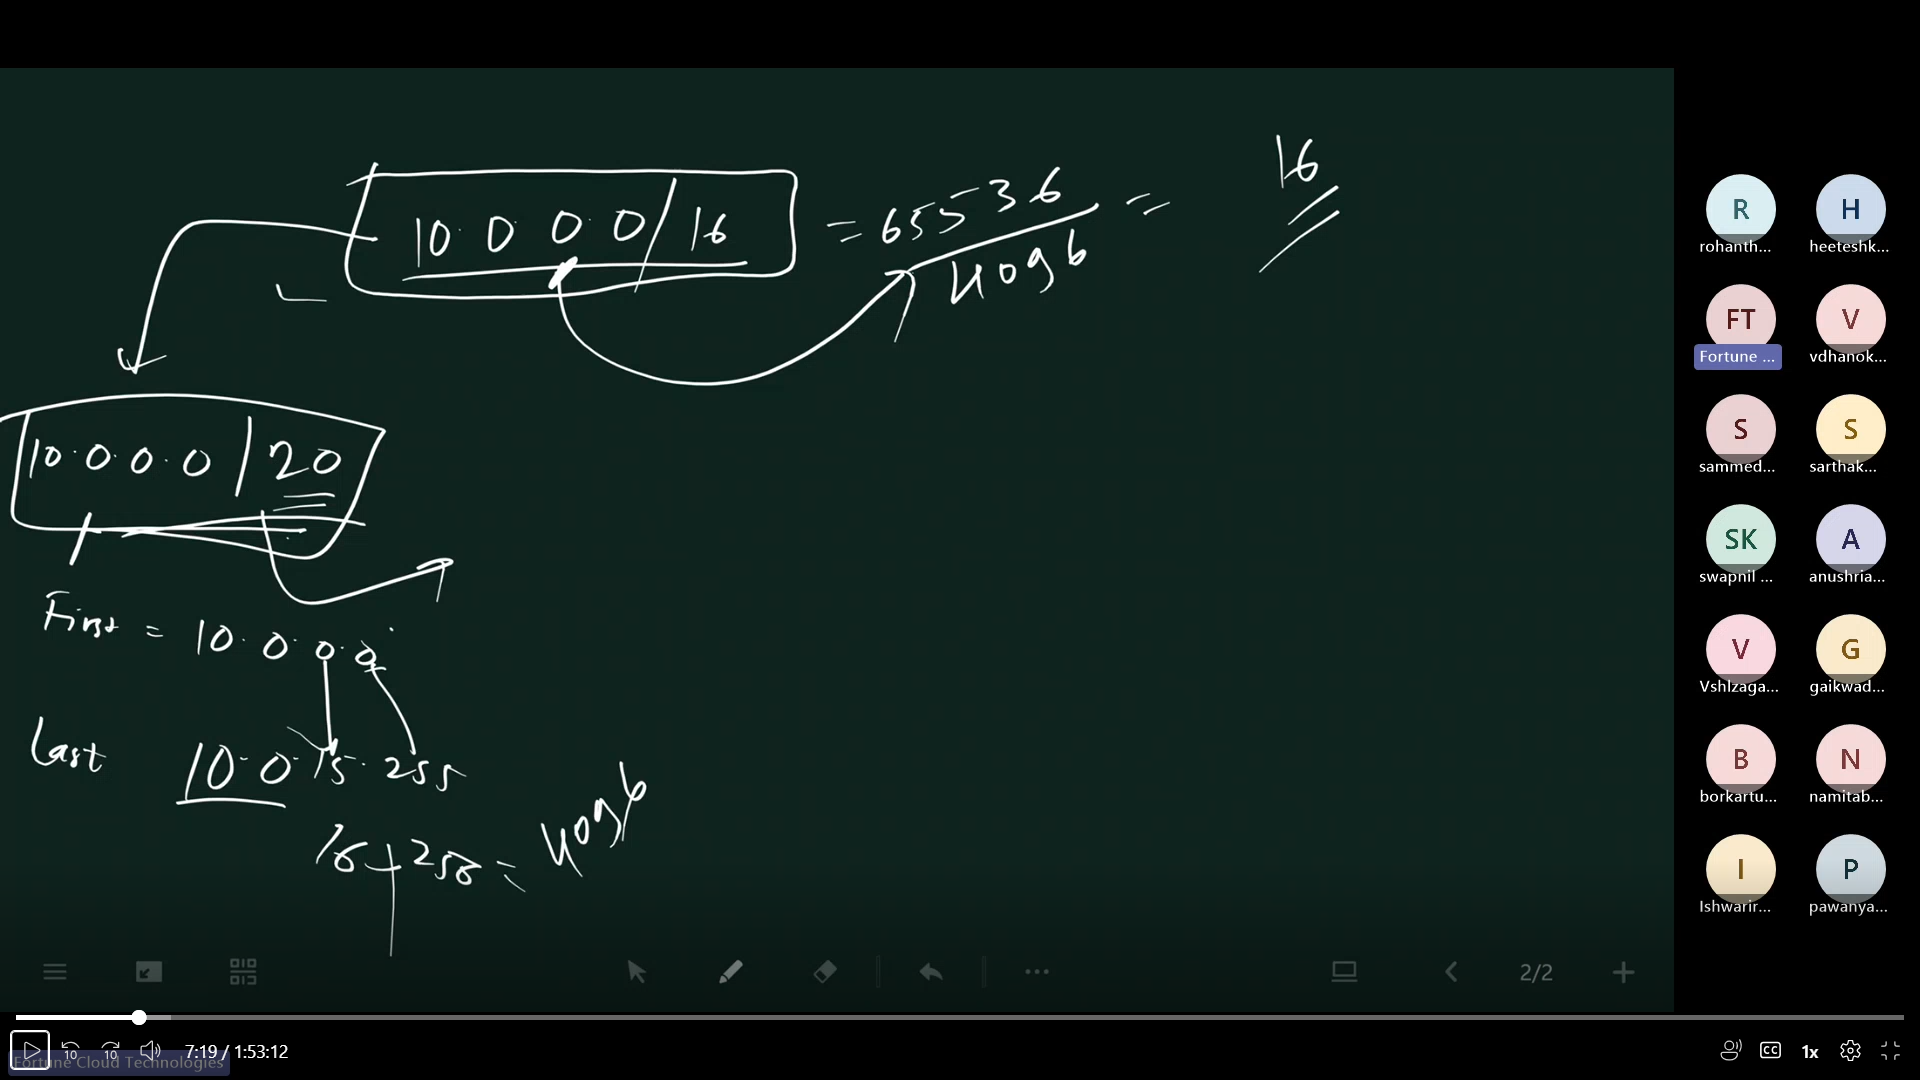 16
10.0.0.0/16 = 65536 =
4096
10.0.0.0/20
First = 10.0.0.0
Last 10.0.15.255
16 + 256 = 4096
R
H
rohanth...
heeteshk...
FT
V
Fortune ...
vdhanok...
S
S
sammed...
sarthak...
SK
A
swapnil ...
anushria...
V
G
Vshlzaga...
gaikwad...
B
N
borkartu...
namitab...
I
P
Ishwarir...
pawanya...
2/2
10
10
7:19 / 1:53:12
CC
1x
Fortune Cloud Technologies